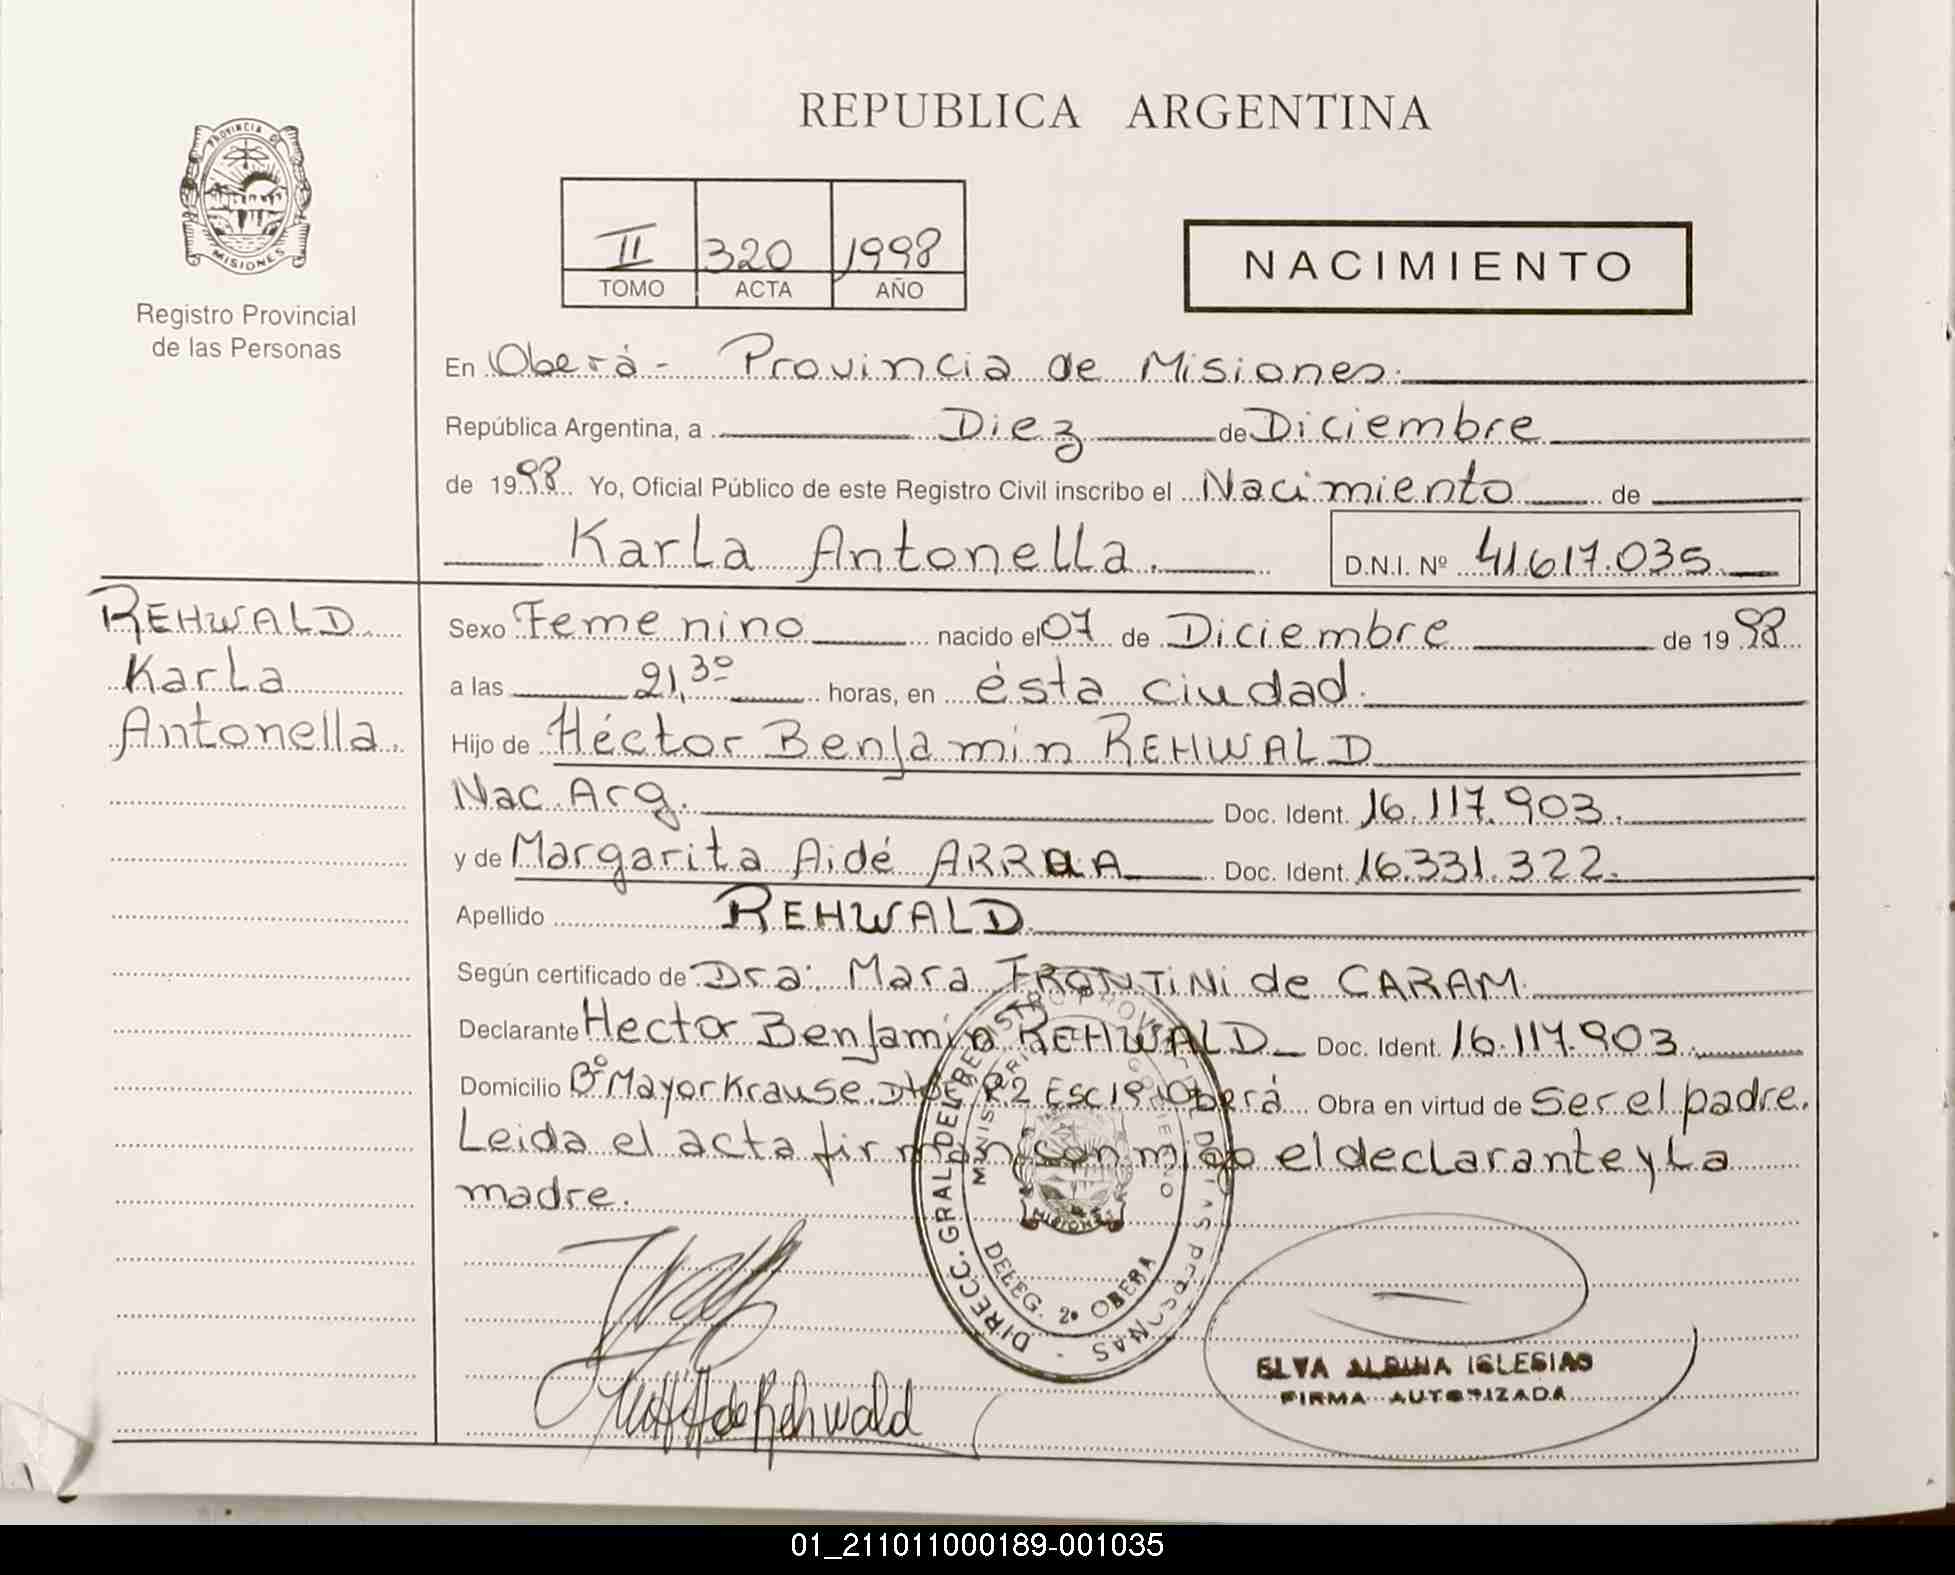 REPUBLICA ARGENTINA
PROVINCIA DE
MISIONES
Registro Provincial
de las Personas
II 320 1998
TOMO ACTA AÑO
NACIMIENTO
En Oberá - Provincia de Misiones.
República Argentina, a Diez de Diciembre
de 1998 Yo, Oficial Público de este Registro Civil inscribo el Nacimiento de
Karla Antonella. D.N.I. Nº 41.617.035
REHWALD
Karla
Antonella.
Sexo Femenino nacido el 07 de Diciembre de 1998
a las 21,30 horas, en ésta ciudad.
Hijo de Héctor Benjamin REHWALD
Nac. Arg. Doc. Ident. 16.117.903.
y de Margarita Aidé ARRUA Doc. Ident. 16.331.322.
Apellido REHWALD
Según certificado de Dra: Mara FRONTINI de CARAM.
Declarante Hector Benjamin REHWALD Doc. Ident. 16.117.903.
Domicilio Bº Mayor Krause. R2 Esc 19 Oberá Obra en virtud de Ser el padre.
Leida el acta firman conmigo el declarante y La
madre.
DIRECC. GRAL DEL REGISTRO PROV. DE LAS PERSONAS
MINISTERIO GOBIERNO
MISIONES
DELEG. 2º OBERA
de Rehwald
ELVA ALBINA IGLESIAS
FIRMA AUTORIZADA
01_211011000189-001035